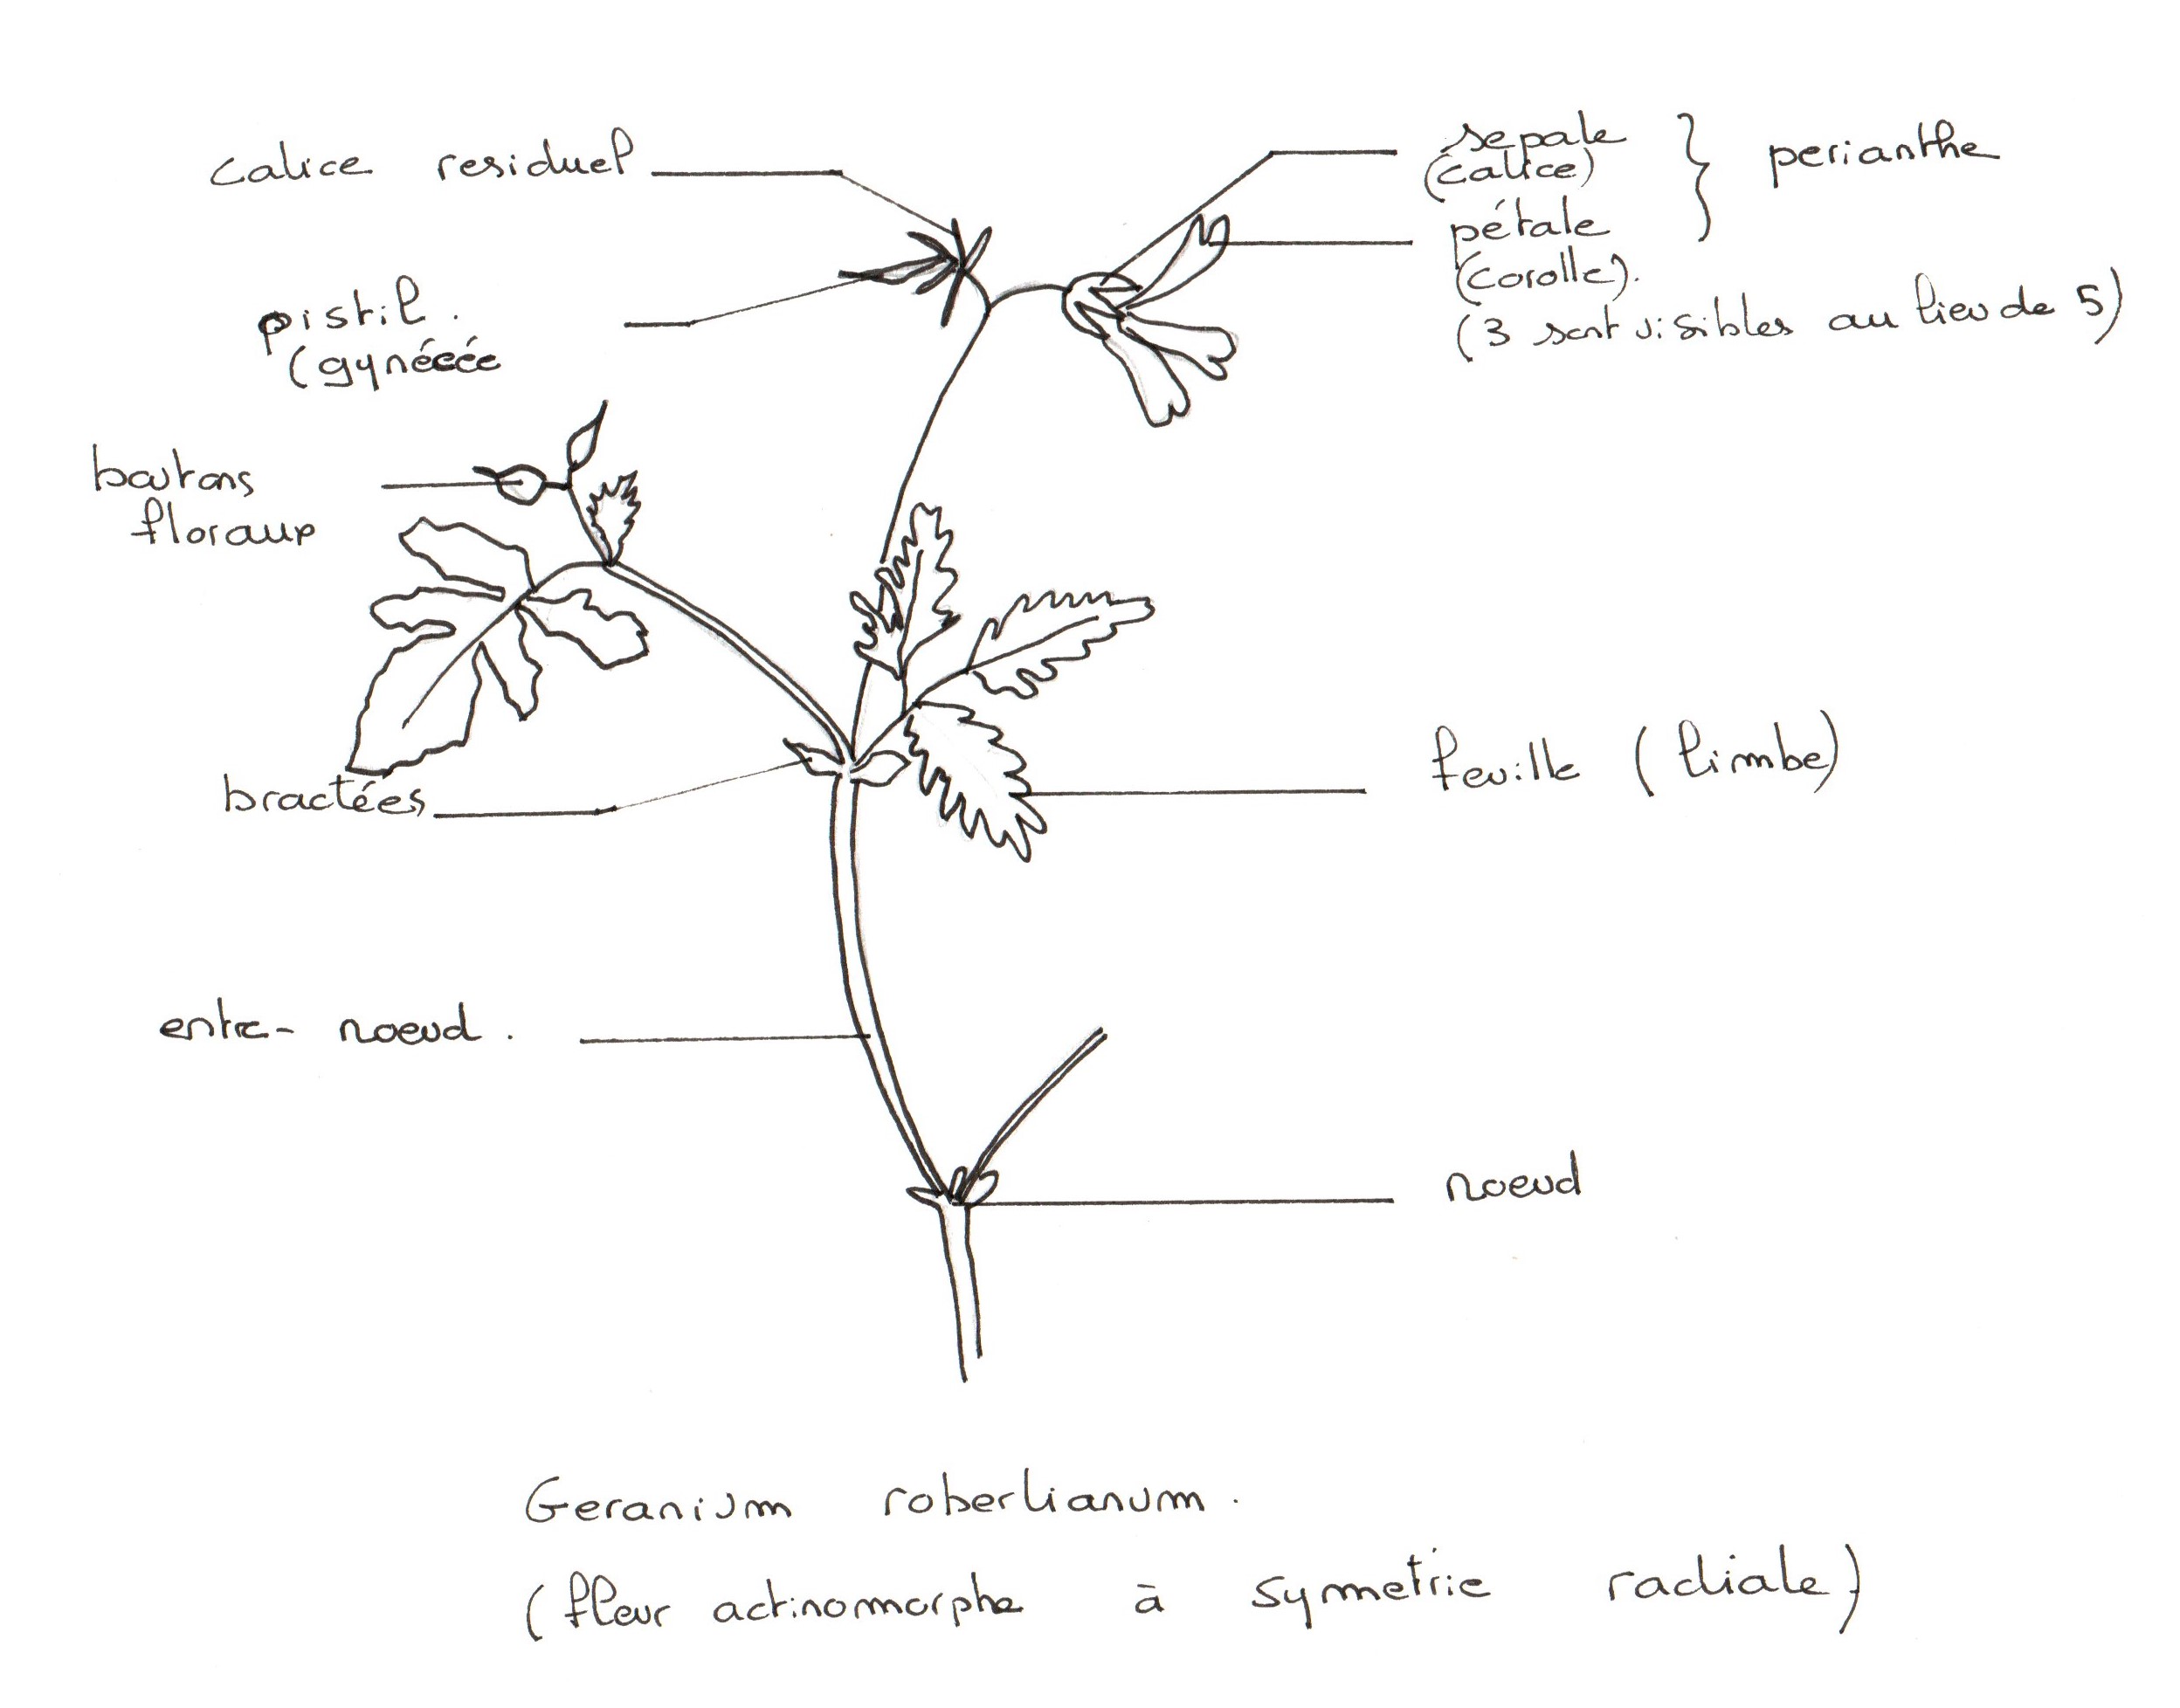 calice residuel
sepale
(calice)
perianthe
pétale
(corolle).
(3 sont visibles au lieu de 5)
pistil.
(gynécée
boutons
floraux
bractées
feuille (limbe)
entre-noeud.
noeud
Geranium robertianum.
(fleur actinomorphe à symmetrie radiale)